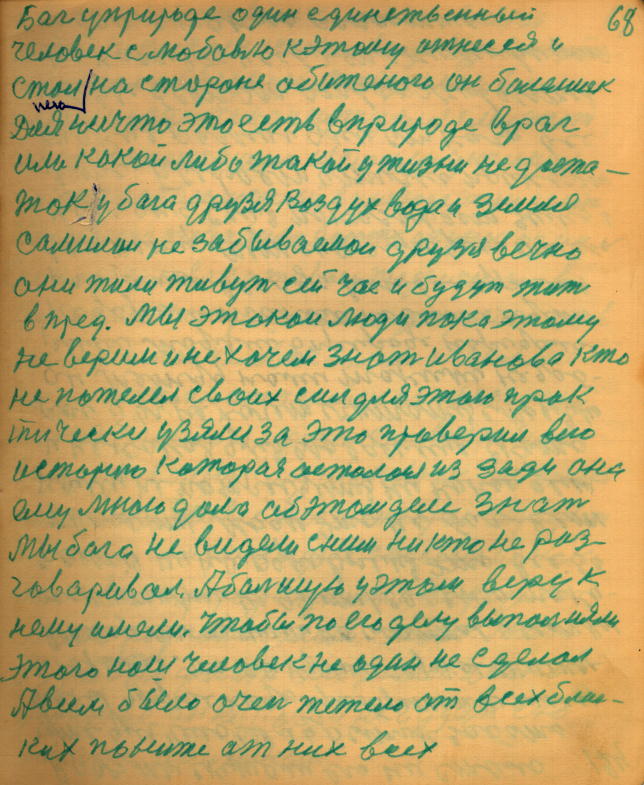 68
Бог у природе один единственный
человек с любовлю к этому отнесся и
стал на стороне обиженого он болельшек
него
Для нечто это есть в природе враг
или какой либо такой у жизни не доста-
ток у бога друзя воздух вода и земля
самыи не забываемаи друзя вечно
они жили живут сей час и будут жит
в пред. Мы этокои люди пока этому
не верим и не хочем знат Иванова кто
не пожелел своих сил для этого прак
тически узяли за это проверил всю
исторыю которая осталас из зади она
ему много дала об этом деле знат
Мы бога не видели сним никто не раз-
говаривал, А болшую у этом веру к
нему имели. Чтобы по его делу выполняли
этого наш человек не один не сделал
А всем было очен тежело от всех близ-
ких по ниже от них всех